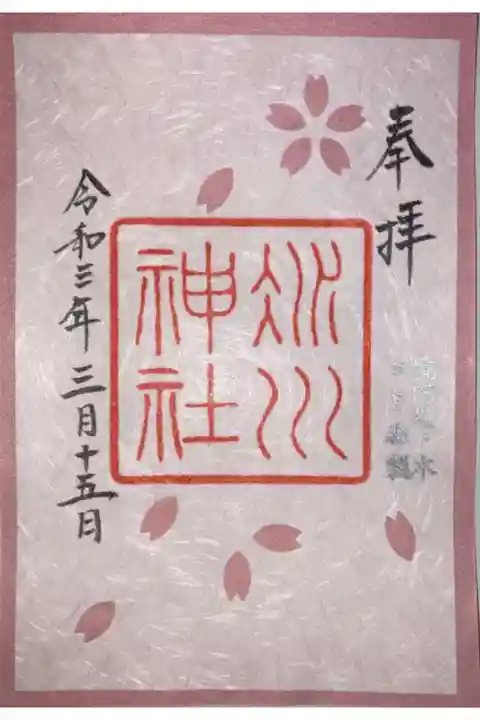 奉拝
氷川
神社
令和三年三月十五日